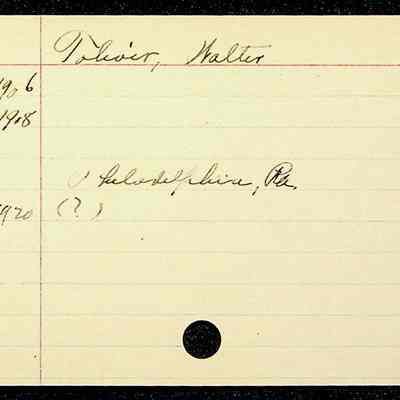 Toliver, Walter
1906
1908
Philadelphia, Pa.
1920 (?)